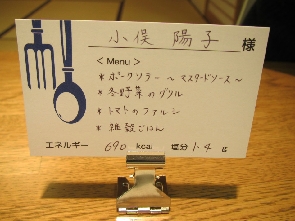 小俣 陽子 様
< Menu >
* ポークソテー ～ マスタードソース ～
* 冬野菜のグリル
* トマトのファルシ
* 雑穀ごはん
エネルギー 690 kcal 塩分 1.4 g